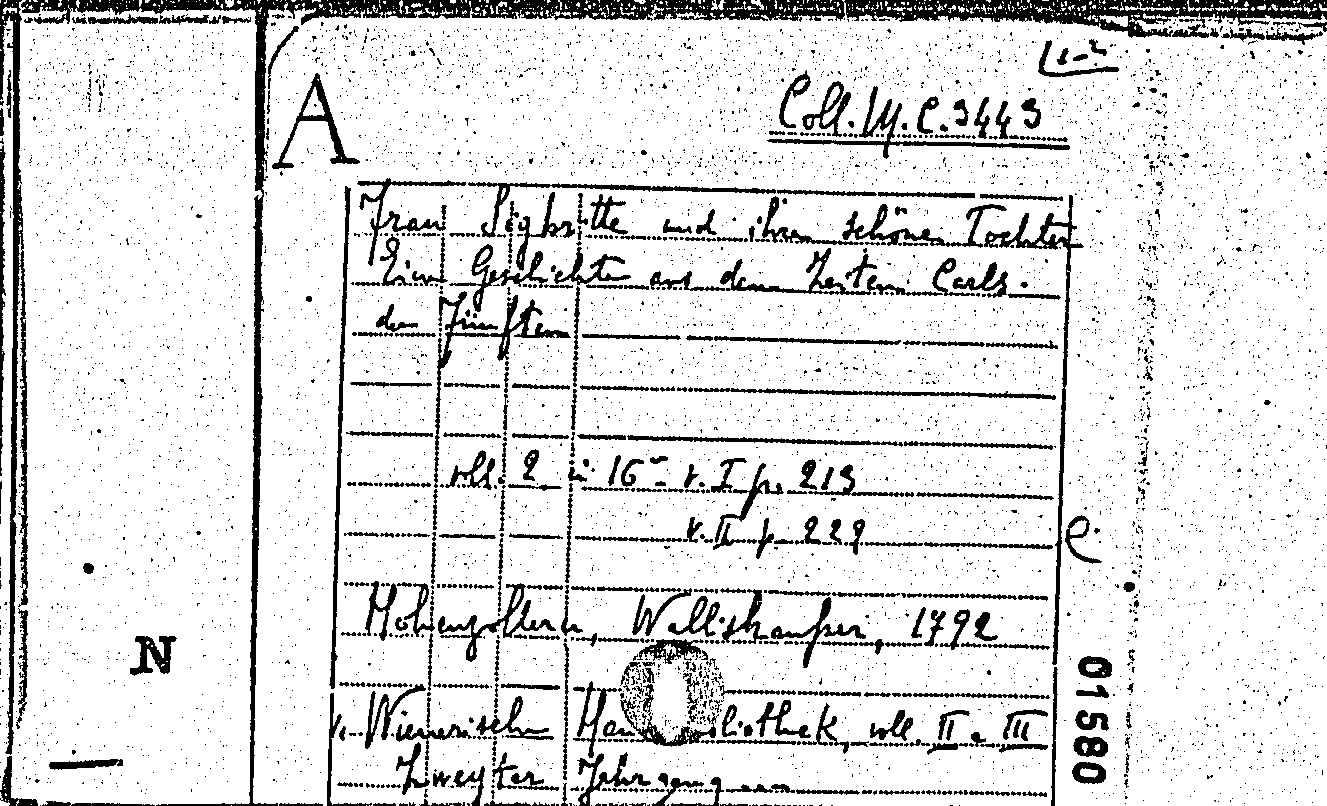 A
Coll. M. C. 3443
Frau Sigbritte und ihre schöne Tochter
Eine Geschichte aus den Zeiten Carls
des Fünften
voll. 2 in 16° v. I p. 213
v. II p. 229
e
Hohenzollern, Wallishauser, 1792
N
v. Wienerische bliothek, voll. II e III
Zweyter Jahrgang
01580